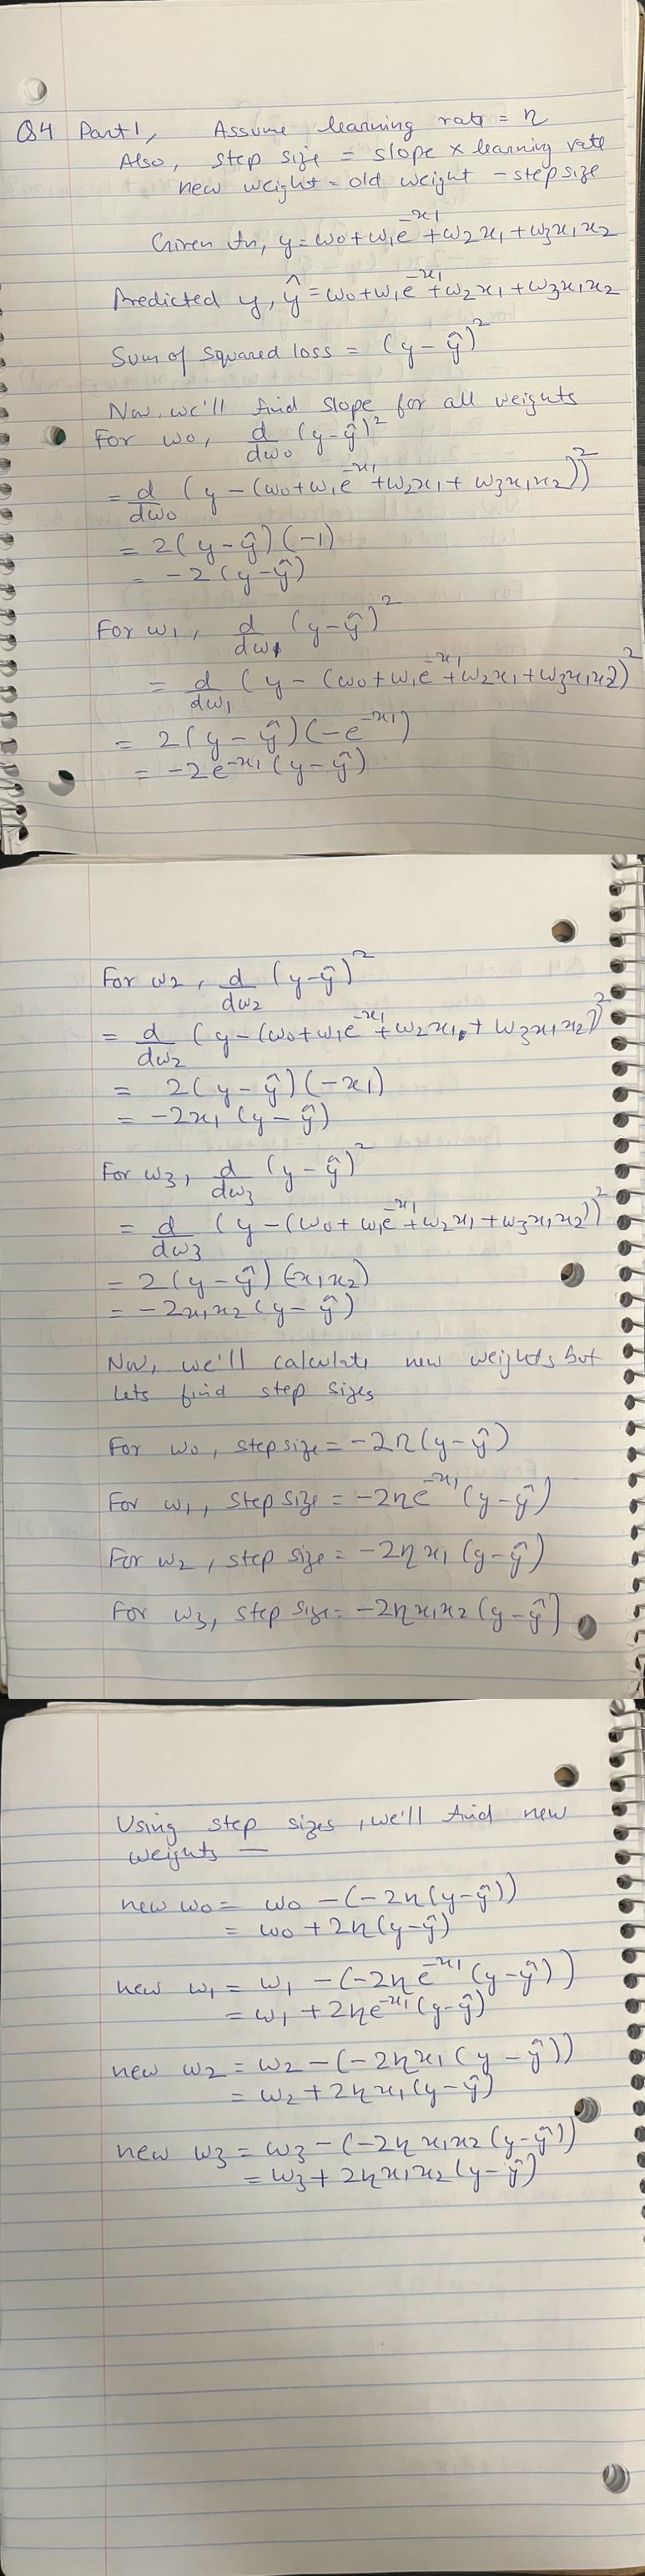 Q4 Part 1, Assume learning rate = η
Also, step size = slope × learning rate
new weight = old weight - step size
Given fn, y = w0 + w1e^-x1 + w2x1 + w3x1x2
Predicted y, ŷ = w0 + w1e^-x1 + w2x1 + w3x1x2
Sum of squared loss = (y - ŷ)^2
Now, we'll find slope for all weights
For w0, d/dw0 (y - ŷ)^2
= d/dw0 (y - (w0 + w1e^-x1 + w2x1 + w3x1x2))^2
= 2(y - ŷ)(-1)
= -2(y - ŷ)
For w1, d/dw1 (y - ŷ)^2
= d/dw1 (y - (w0 + w1e^-x1 + w2x1 + w3x1x2)^2
= 2(y - ŷ)(-e^-x1)
= -2e^-x1 (y - ŷ)
For w2, d/dw2 (y - ŷ)^2
= d/dw2 (y - (w0 + w1e^-x1 + w2x1 + w3x1x2))^2
= 2(y - ŷ)(-x1)
= -2x1 (y - ŷ)
For w3, d/dw3 (y - ŷ)^2
= d/dw3 (y - (w0 + w1e^-x1 + w2x1 + w3x1x2))^2
= 2(y - ŷ)(-x1x2)
= -2x1x2 (y - ŷ)
Now, we'll calculate new weights but
lets find step sizes
For w0, step size = -2η(y - ŷ)
For w1, step size = -2ηe^-x1 (y - ŷ)
For w2, step size = -2ηx1 (y - ŷ)
For w3, step size = -2ηx1x2 (y - ŷ)
Using step sizes, we'll find new
weights —
new w0 = w0 - (-2η(y - ŷ))
= w0 + 2η(y - ŷ)
new w1 = w1 - (-2ηe^-x1 (y - ŷ))
= w1 + 2ηe^-x1 (y - ŷ)
new w2 = w2 - (-2ηx1 (y - ŷ))
= w2 + 2ηx1 (y - ŷ)
new w3 = w3 - (-2ηx1x2 (y - ŷ))
= w3 + 2ηx1x2 (y - ŷ)